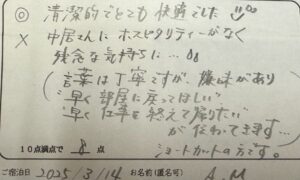 ◎ 清潔的でとても快適でした
× 中居さんにホスピタリティーがなく
残念な気持ちに…
(言葉は丁寧ですが、嫌味があり
早く部屋に戻ってほしい
早く仕事を終えて帰りたい
が伝わってきます…)
ショートカットの方です。
10点満点で 8 点
ご宿泊日 2025/3/14 お名前(匿名可) A.M